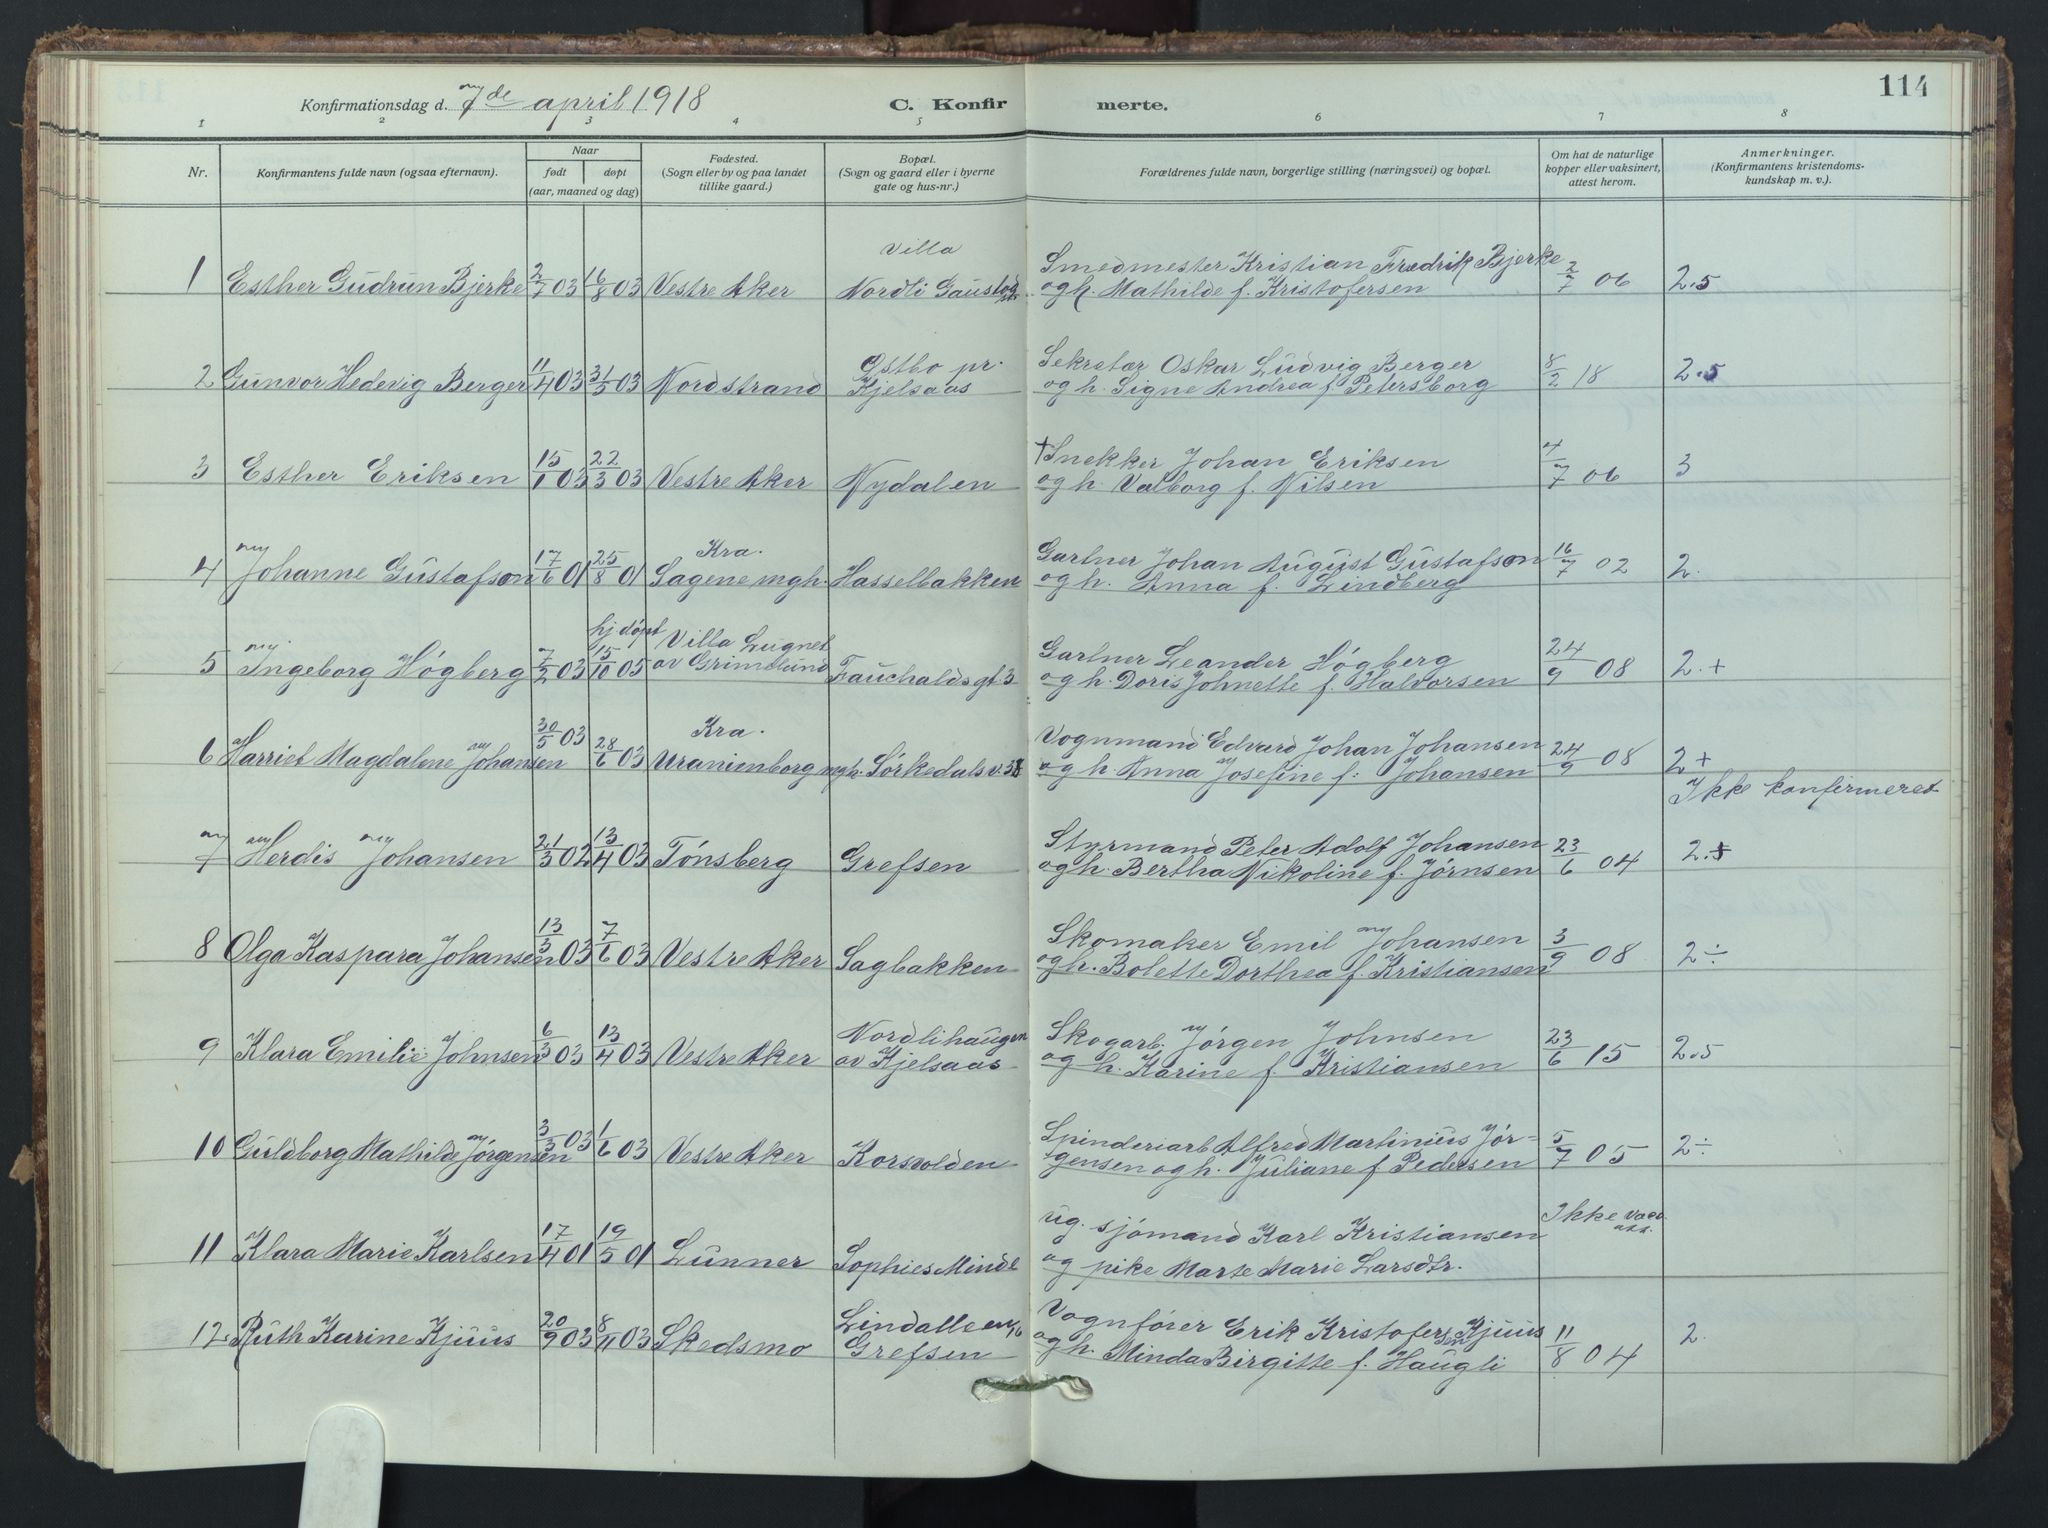 114
Konfirmationsdag d. 7de april 1918 C. Konfirmerte.
1 2 3 4 5 6 7 8
Nr. Konfirmantens fulde navn (ogsaa efternavn). Naar født døpt (aar, maaned og dag) Fødested. (Sogn eller by og paa landet tillike gaard.) Bopæl. (Sogn og gaard eller i byerne gate og hus-nr.) Forældrenes fulde navn, borgerlige stilling (næringsvei) og bopæl. Om hat de naturlige kopper eller vaksinert, attest herom. Anmerkninger. (Konfirmantens kristendomskundskap m. v.).
Villa Smedmester Kristian Fredrik Bjerke
1 Esther Gudrun Bjerke 2/7 03 16/8 03 Vestre Aker Nordli Gaustad og h. Mathilde f. Kristofersen 2/7 06 2.5
Østbo pr. Sekretær Oskar Ludvig Berger
2 Gunvor Hedevig Berger 11/4 03 31/5 03 Nordstrand Kjelsaas og h. Signe Andrea f. Petersborg 8/2 18 2.5
+Snekker Johan Eriksen
3 Esther Eriksen 15/1 03 22/3 03 Vestre Aker Nydalen og h. Valborg f. Nilsen 4/7 06 3
Kra. Gartner Johan August Gustafson
4 Johanne Gustafson 17/6 01 25/8 01 Sagene mgh. Hasselbakken og h. Anna f. Lindberg 16/7 02 2.
hj døpt Villa Lugnet Gartner Leander Høgberg
5 Ingeborg Høgberg 7/2 03 15/10 05 av Grimelund Fauchaldsgt 3 og h. Doris Johnette f. Halvorsen 24/9 08 2.+
Kra. Vognmand Edvard Johan Johansen
6 Harriet Magdalene Johansen 30/5 03 28/6 03 Uranienborg mgh. Sørkedalsv. og h. Anna Josefine f. Johansen 24/9 08 2+
Ikke konfirmeret
Styrmand Peter Adolf Johansen
7 Herdis Johansen 21/3 02 13/4 03 Tønsberg Grefsen og h. Bertha Nikoline f. Jørnsen 23/6 04 2.5
Skomaker Emil Johansen
8 Olga Kaspara Johansen 13/3 03 7/6 03 Vestre Aker Sagbakken og h. Bolette Dorthea f. Kristiansen 3/9 08 2÷
Nordlihaugen Skogarb. Jørgen Johnsen
9 Klara Emilie Johnsen 6/3 03 13/4 03 Vestre Aker av Kjelsaas og h. Karine f. Kristiansen 23/6 15 2.5
Spinderiarb Alfred Martinius Jør-
10 Guldborg Mathilde Jørgensen 3/3 03 1/6 03 Vestre Aker Korsvolden gensen og h. Juliane f Pedersen 5/7 05 2÷
ug. sjømand Karl Kristiansen Ikke vacc. att.
11 Klara Marie Karlsen 17/4 01 19/5 01 Lunner Sophies Minde og pike Marte Marie Larsdtr.
Lindalleen 16 Vognfører Erik Kristofersen Kjuus
12 Ruth Karine Kjuus 20/9 03 8/11 03 Skedsmo Grefsen og h. Minda Birgitte f. Haugli 11/8 04 2.